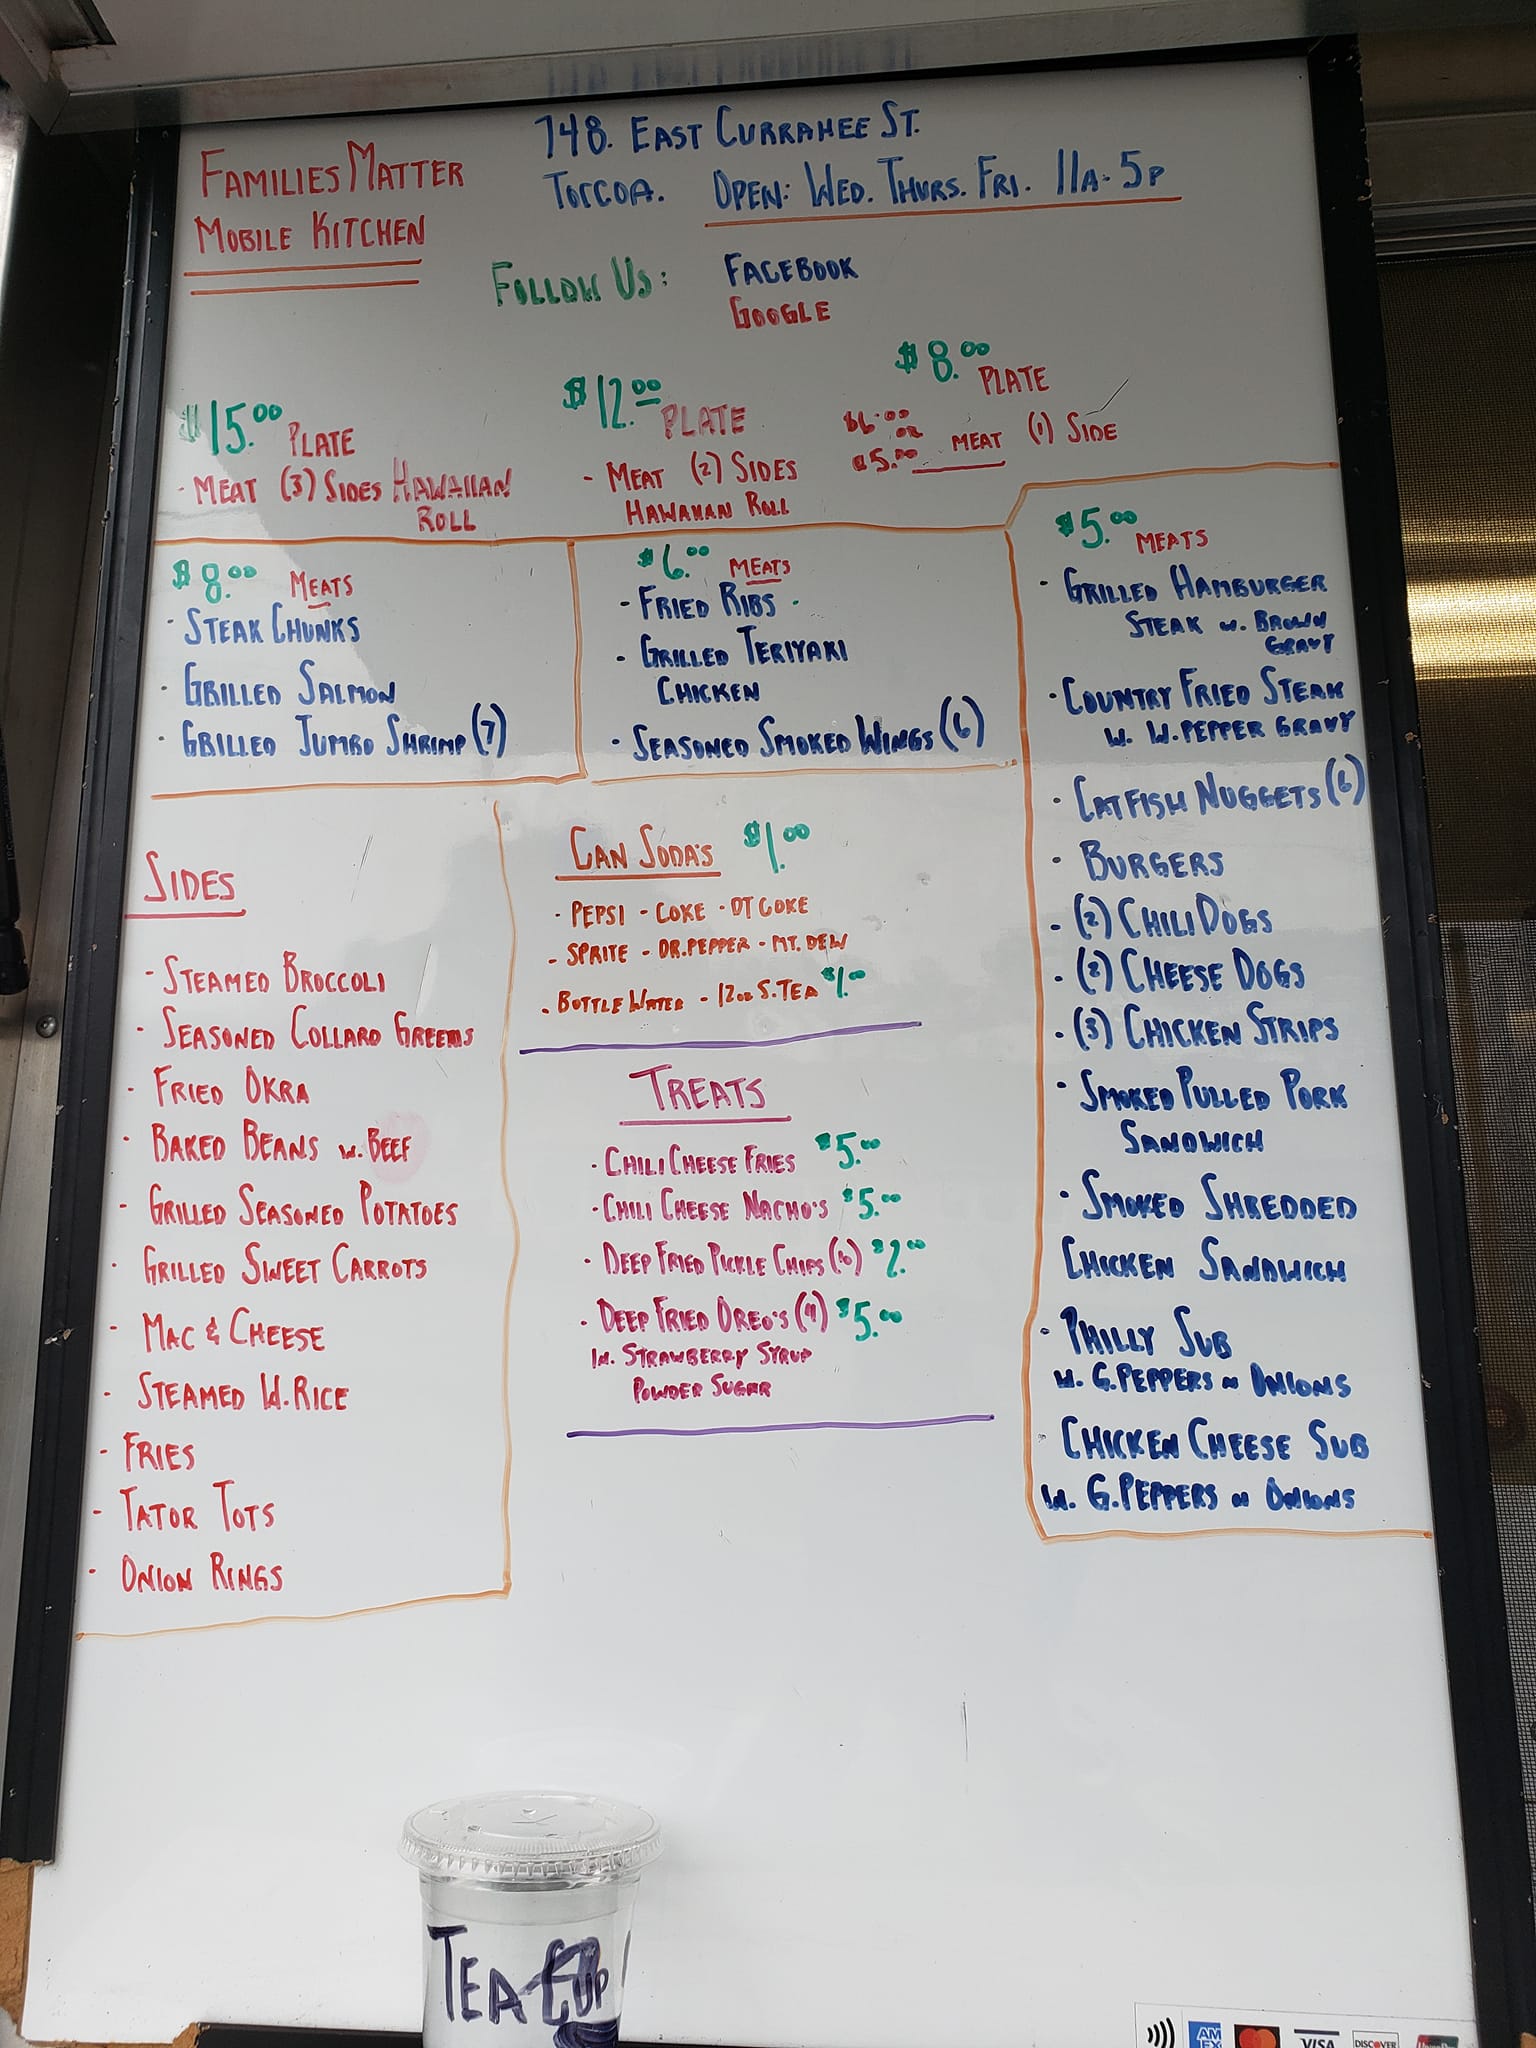 FAMILIES MATTER
MOBILE KITCHEN
748. EAST CURRAHEE ST.
TOCCOA. OPEN: WED. THURS. FRI. 11A-5P
FOLLOW US: FACEBOOK
GOOGLE
$15.00 PLATE
- MEAT (3) SIDES HAWAIIAN
ROLL
$12.00 PLATE
- MEAT (2) SIDES
HAWAIIAN ROLL
$8.00 PLATE
$6.00
OR
$5.00 MEAT (1) SIDE
$8.00 MEATS
· STEAK CHUNKS
· GRILLED SALMON
· GRILLED JUMBO SHRIMP (7)
$6.00 MEATS
- FRIED RIBS
- GRILLED TERIYAKI
CHICKEN
· SEASONED SMOKED WINGS (6)
$5.00 MEATS
· GRILLED HAMBURGER
STEAK W. BROWN
GRAVY
· COUNTRY FRIED STEAK
W. W. PEPPER GRAVY
· CATFISH NUGGETS (6)
· BURGERS
· (2) CHILI DOGS
· (2) CHEESE DOGS
· (3) CHICKEN STRIPS
· SMOKED PULLED PORK
SANDWICH
· SMOKED SHREDDED
CHICKEN SANDWICH
· PHILLY SUB
W. G. PEPPERS N ONIONS
· CHICKEN CHEESE SUB
W. G. PEPPERS N ONIONS
SIDES
- STEAMED BROCCOLI
- SEASONED COLLARD GREENS
- FRIED OKRA
· BAKED BEANS W. BEEF
· GRILLED SEASONED POTATOES
· GRILLED SWEET CARROTS
· MAC & CHEESE
· STEAMED W. RICE
- FRIES
- TATOR TOTS
· ONION RINGS
CAN SODA'S $1.00
- PEPSI - COKE - DT COKE
- SPRITE - DR. PEPPER - MT. DEW
- BOTTLE WATER - 12oz S. TEA $1.00
TREATS
· CHILI CHEESE FRIES $5.00
· CHILI CHEESE NACHO'S $5.00
· DEEP FRIED PICKLE CHIPS (6) $2.00
· DEEP FRIED OREO'S (4) $5.00
W. STRAWBERRY SYRUP
POWDER SUGAR
TEA CUP
AM
EX
VISA
DISCOVER